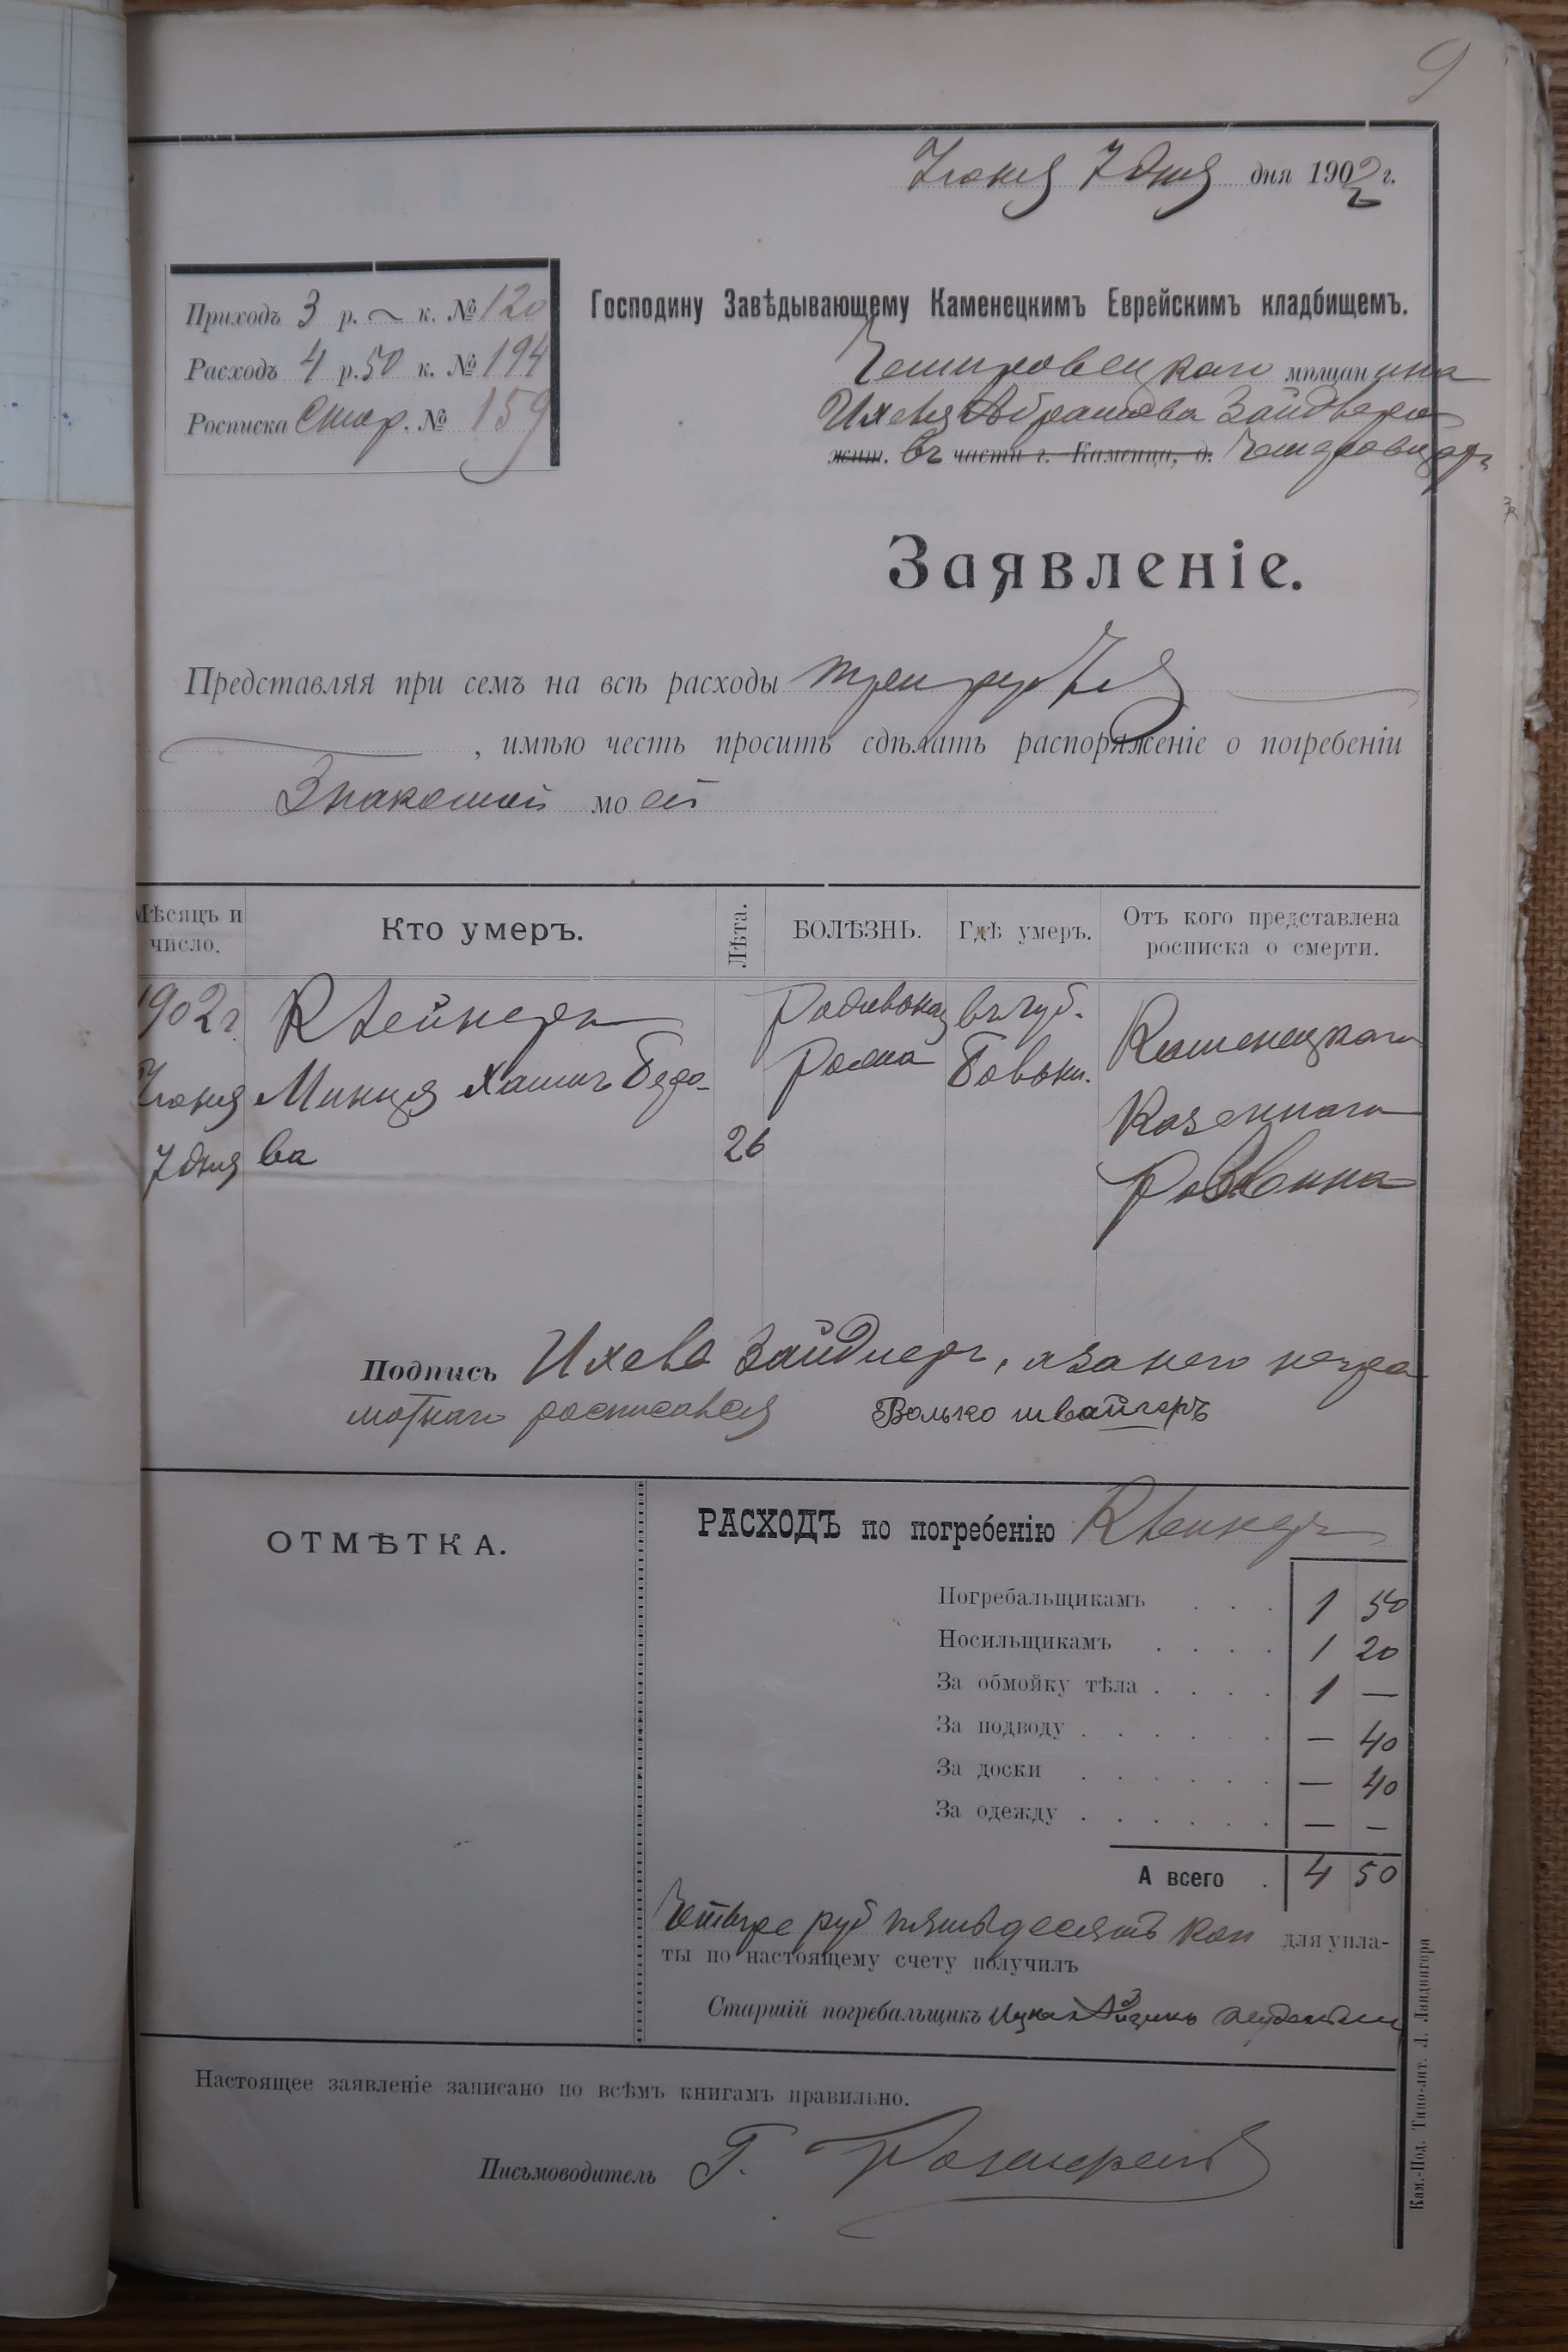 9
Іюня 7 дня дня 1902 г.
Приходъ 3 р. — к. № 120
Расходъ 4 р. 50 к. № 194
Росписка стар. № 159
Господину Завѣдывающему Каменецкимъ Еврейскимъ кладбищемъ.
Чемировецкаго мѣщанина
Ихеля Абрамова Зайднера
жит. въ части г. Каменца, д.
Заявленіе.
Представляя при семъ на всѣ расходы три рубля
, имѣю честь просить сдѣлать распоряженіе о погребеніи
Знакомой моей
Мѣсяцъ и число.
Кто умеръ.
Лѣта.
БОЛѢЗНЬ.
Гдѣ умеръ.
Отъ кого представлена росписка о смерти.
1902 г. Іюня 7 дня
Клейнеръ
Минця Хаимъ Беро-
ва
26
Родильная
въ губ.
Больн.
Каменецкаго
Казеннаго
Раввина
Подпись Ихель Зайднеръ, а за него негра
мотнаго росписался Волько швайгеръ
ОТМѢТКА.
РАСХОДЪ по погребенію Клейнеръ
Погребальщикамъ . . . 1 50
Носильщикамъ . . . . 1 20
За обмойку тѣла . . . . 1 —
За подводу . . . . . . — 40
За доски . . . . . . — 40
За одежду . . . . . . — —
А всего . 4 50
Четыре руб пятьдесятъ коп для упла-
ты по настоящему счету получилъ
Старшій погребальщикъ Ицка Айзикъ
Настоящее заявленіе записано по всѣмъ книгамъ правильно.
Письмоводитель Г.
Кам.-Под. Типо-лит. Л. Ландвигера